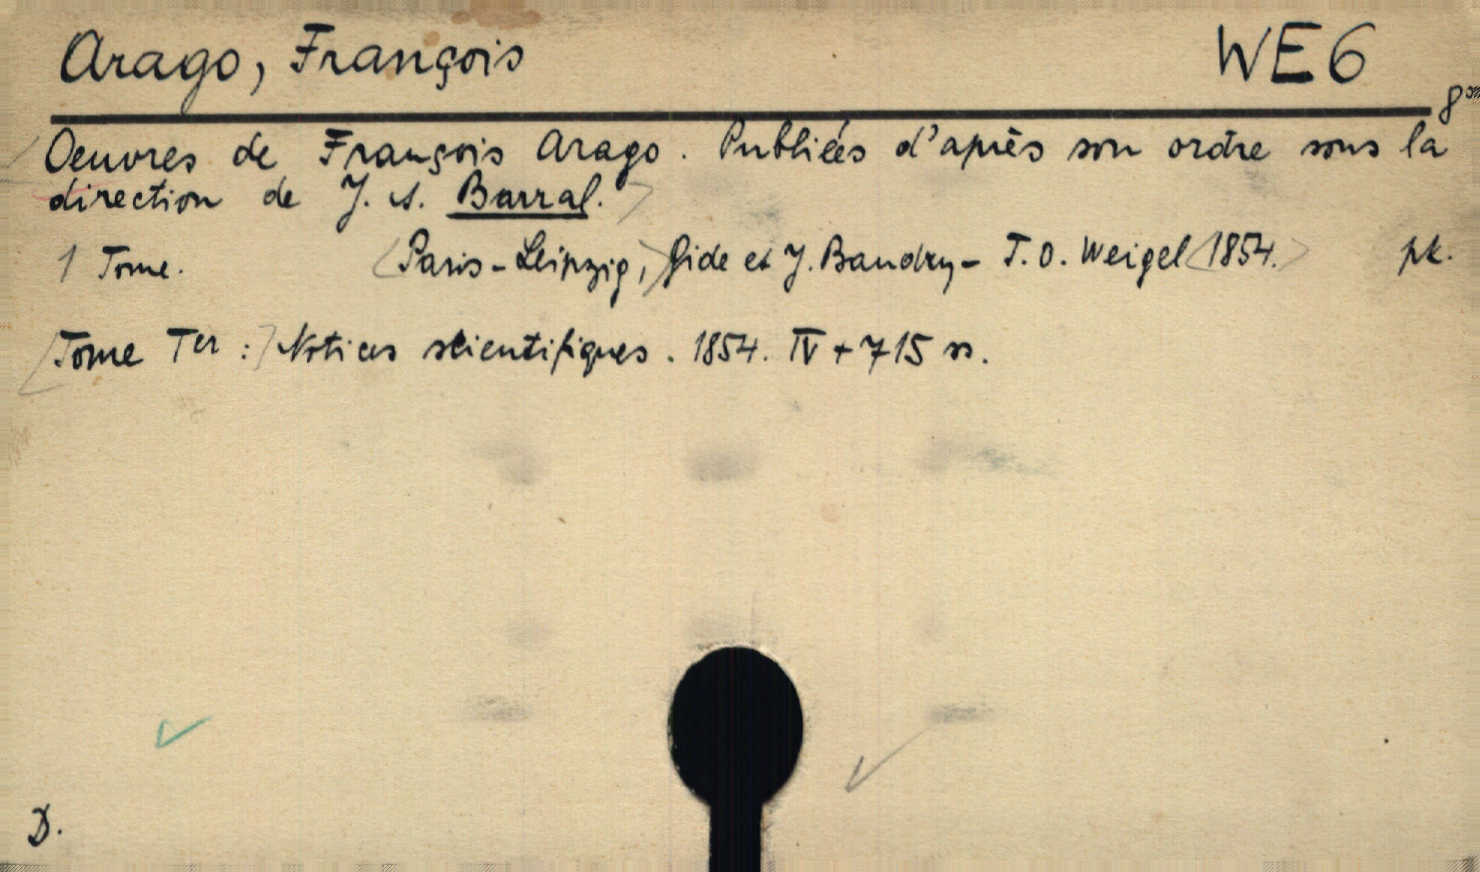 Arago, François WE6
Oeuvres de François Arago. Publiées d'après son ordre sous la
direction de J. A. Barral.
1 Tome. Paris-Leipzig, Gide et J. Baudry - T. O. Weigel 1854. pk.
[Tome Ier :] Notices scientifiques. 1854. IV + 715 ss.
D.